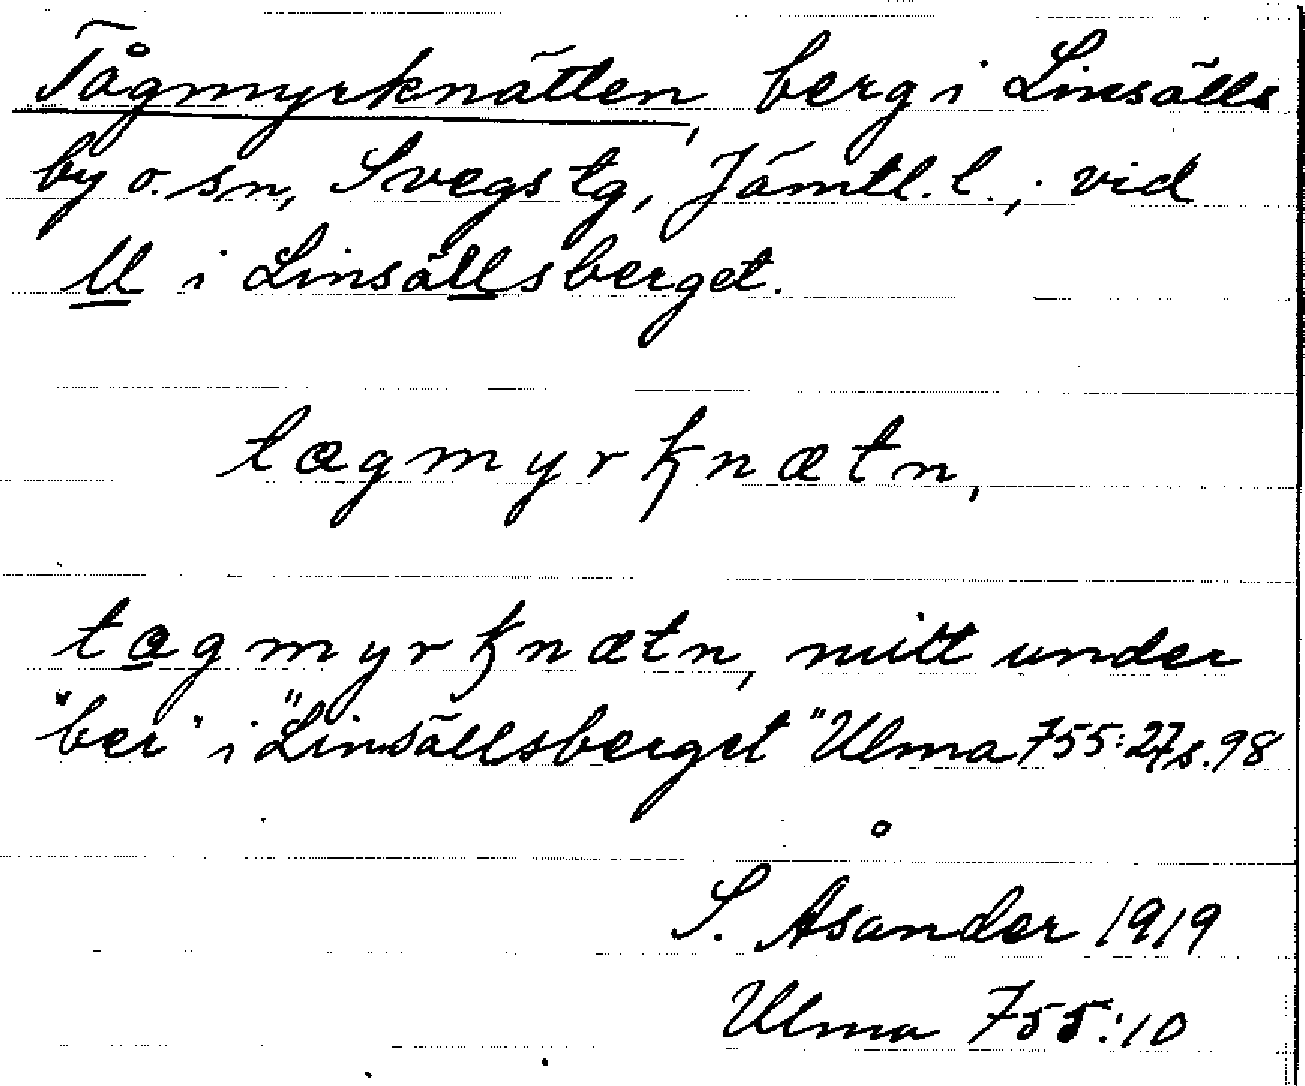 Tågmyrknätten, berg i Linsälls
by o. sn, Svegs tg, Jämtl. l., vid
ll i Linsällsberget.
tægmyrknætn,
tægmyrknætn, mitt under
"ber" i "Linsällsberget" Ulma 755:27 s. 98
S. Åsander 1919
Ulma 755:10